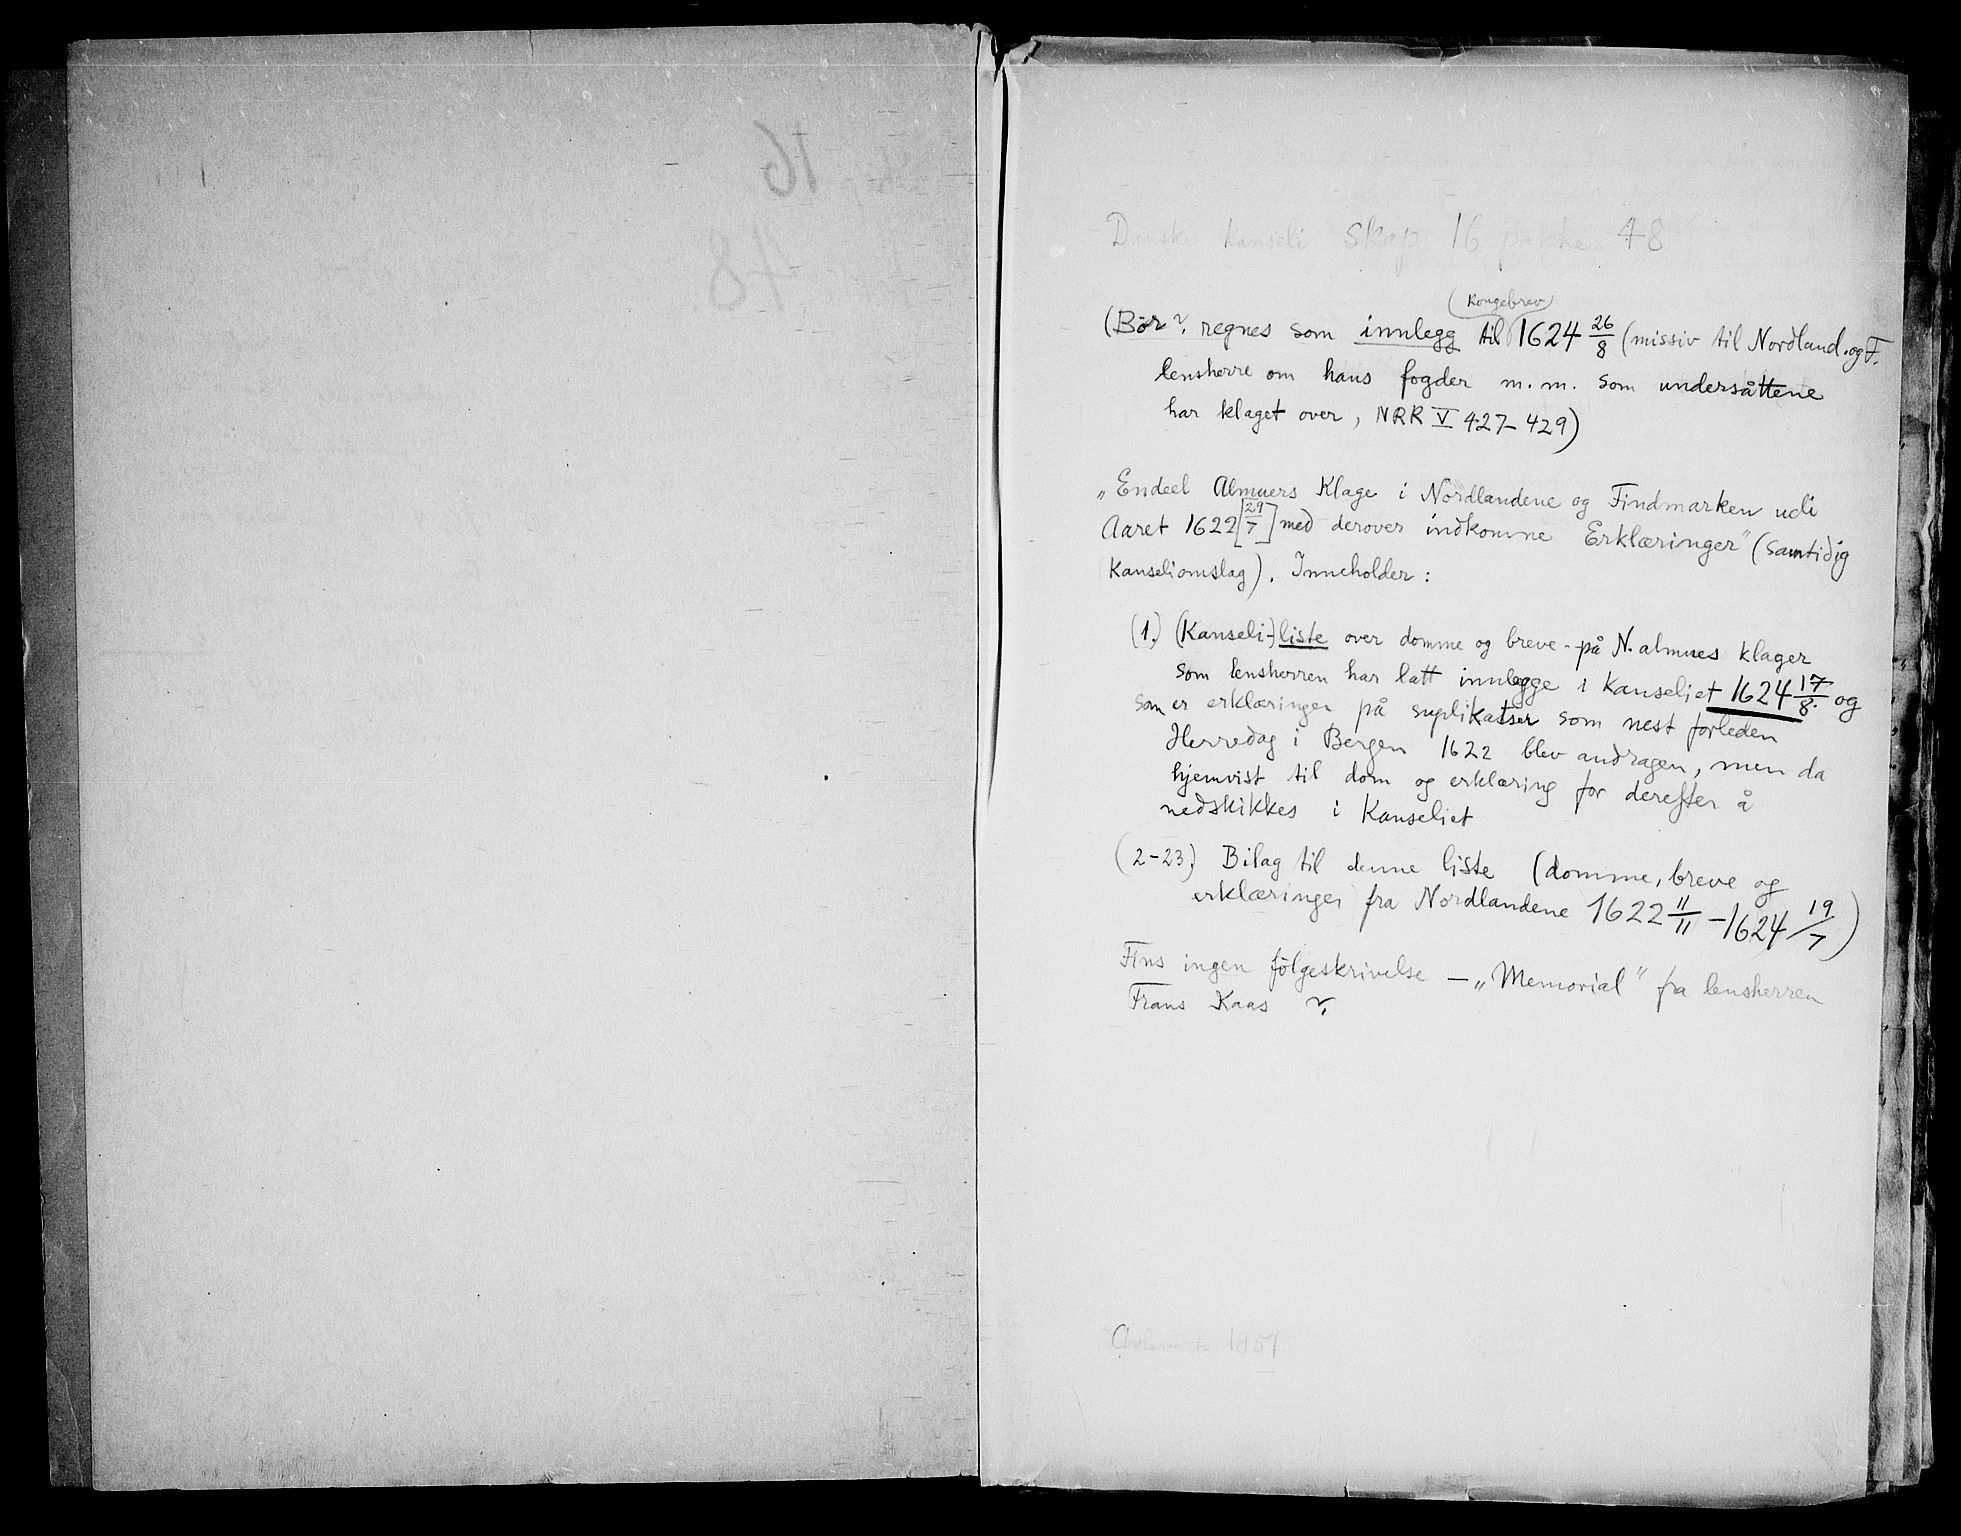 Danske kanseli Skap 16 pakke 48
(kongebrev)
(Bör? regnes som innlegg til 1624 26/8 (missiv til Nordland. og F.
lensherre om hans fogder m.m. som undersåttene
har klaget over, NRR V 427-429)
„Endeel Almuers Klage i Nordlandene og Findmarken udi
Aaret 1622 [29/7] med derover indkomne Erklæringer" (samtidig
kanseliomslag). Inneholder:
(1.) (Kanseli-)liste over domme og breve på N. almues klager
som lensherren har latt innlegge i Kanseliet 1624 17/8. og
som er erklæringer på suplikatser som nest forleden
Herredag i Bergen 1622 blev andragen, men da
hjemvist til dom og erklæring for derefter å
nedskikkes i Kanseliet
(2-23.) Bilag til denne liste (domme, breve og
erklæringer fra Nordlandene 1622 11/11 - 1624 19/7)
Fins ingen følgeskrivelse — „Memorial" fra lensherren
Frans Kaas ?
16
48